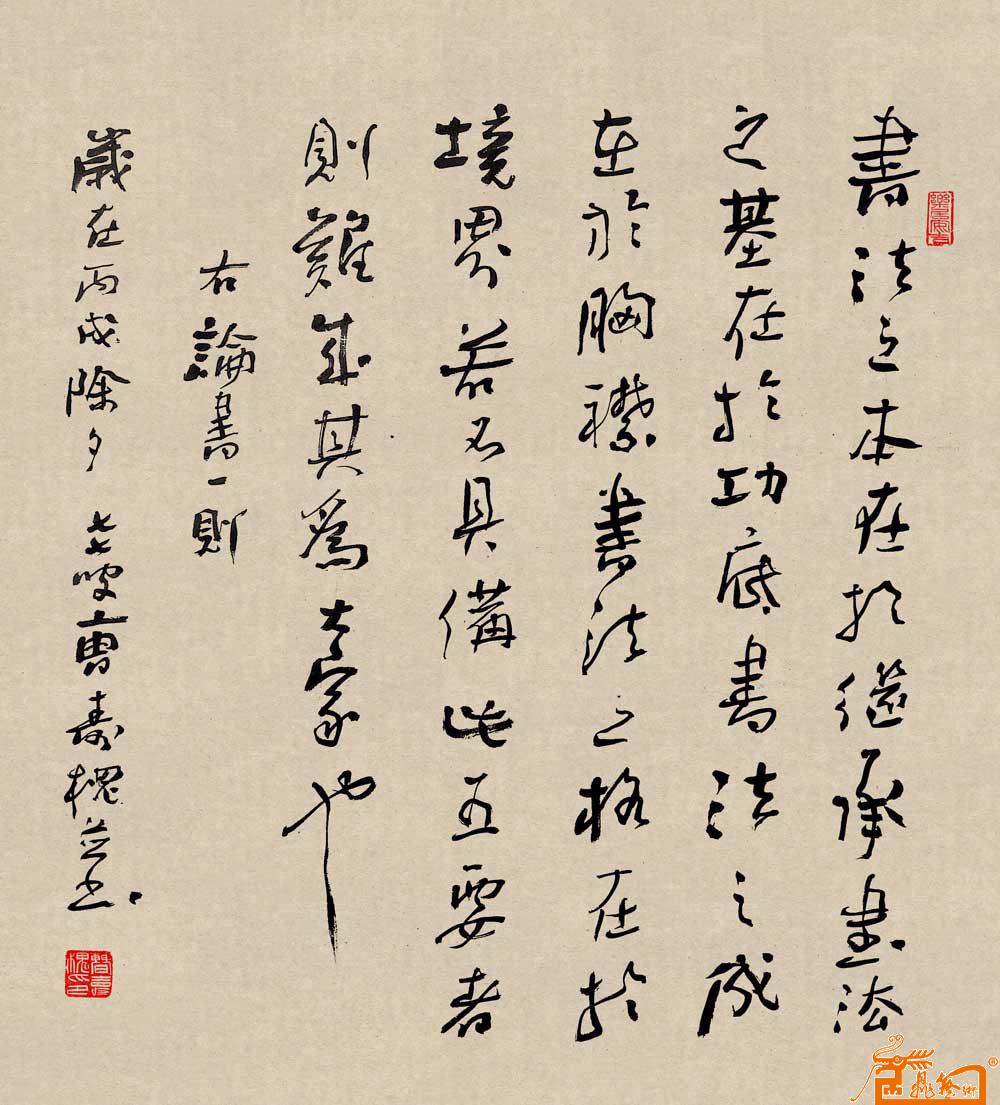 書法之本在於繼承書法
之基在於功底書法之成
在於胸襟書法之格在於
境界若不具備此五要者
則難成其為大家也
右論書一則
歲在丙戌除夕 七七叟曹壽槐並書